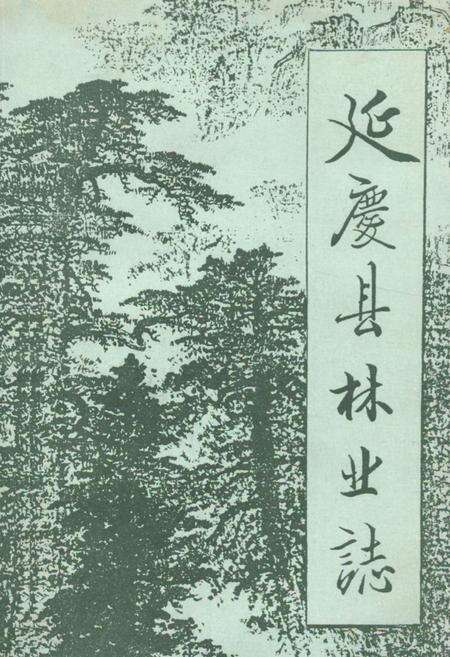 延慶县林业誌